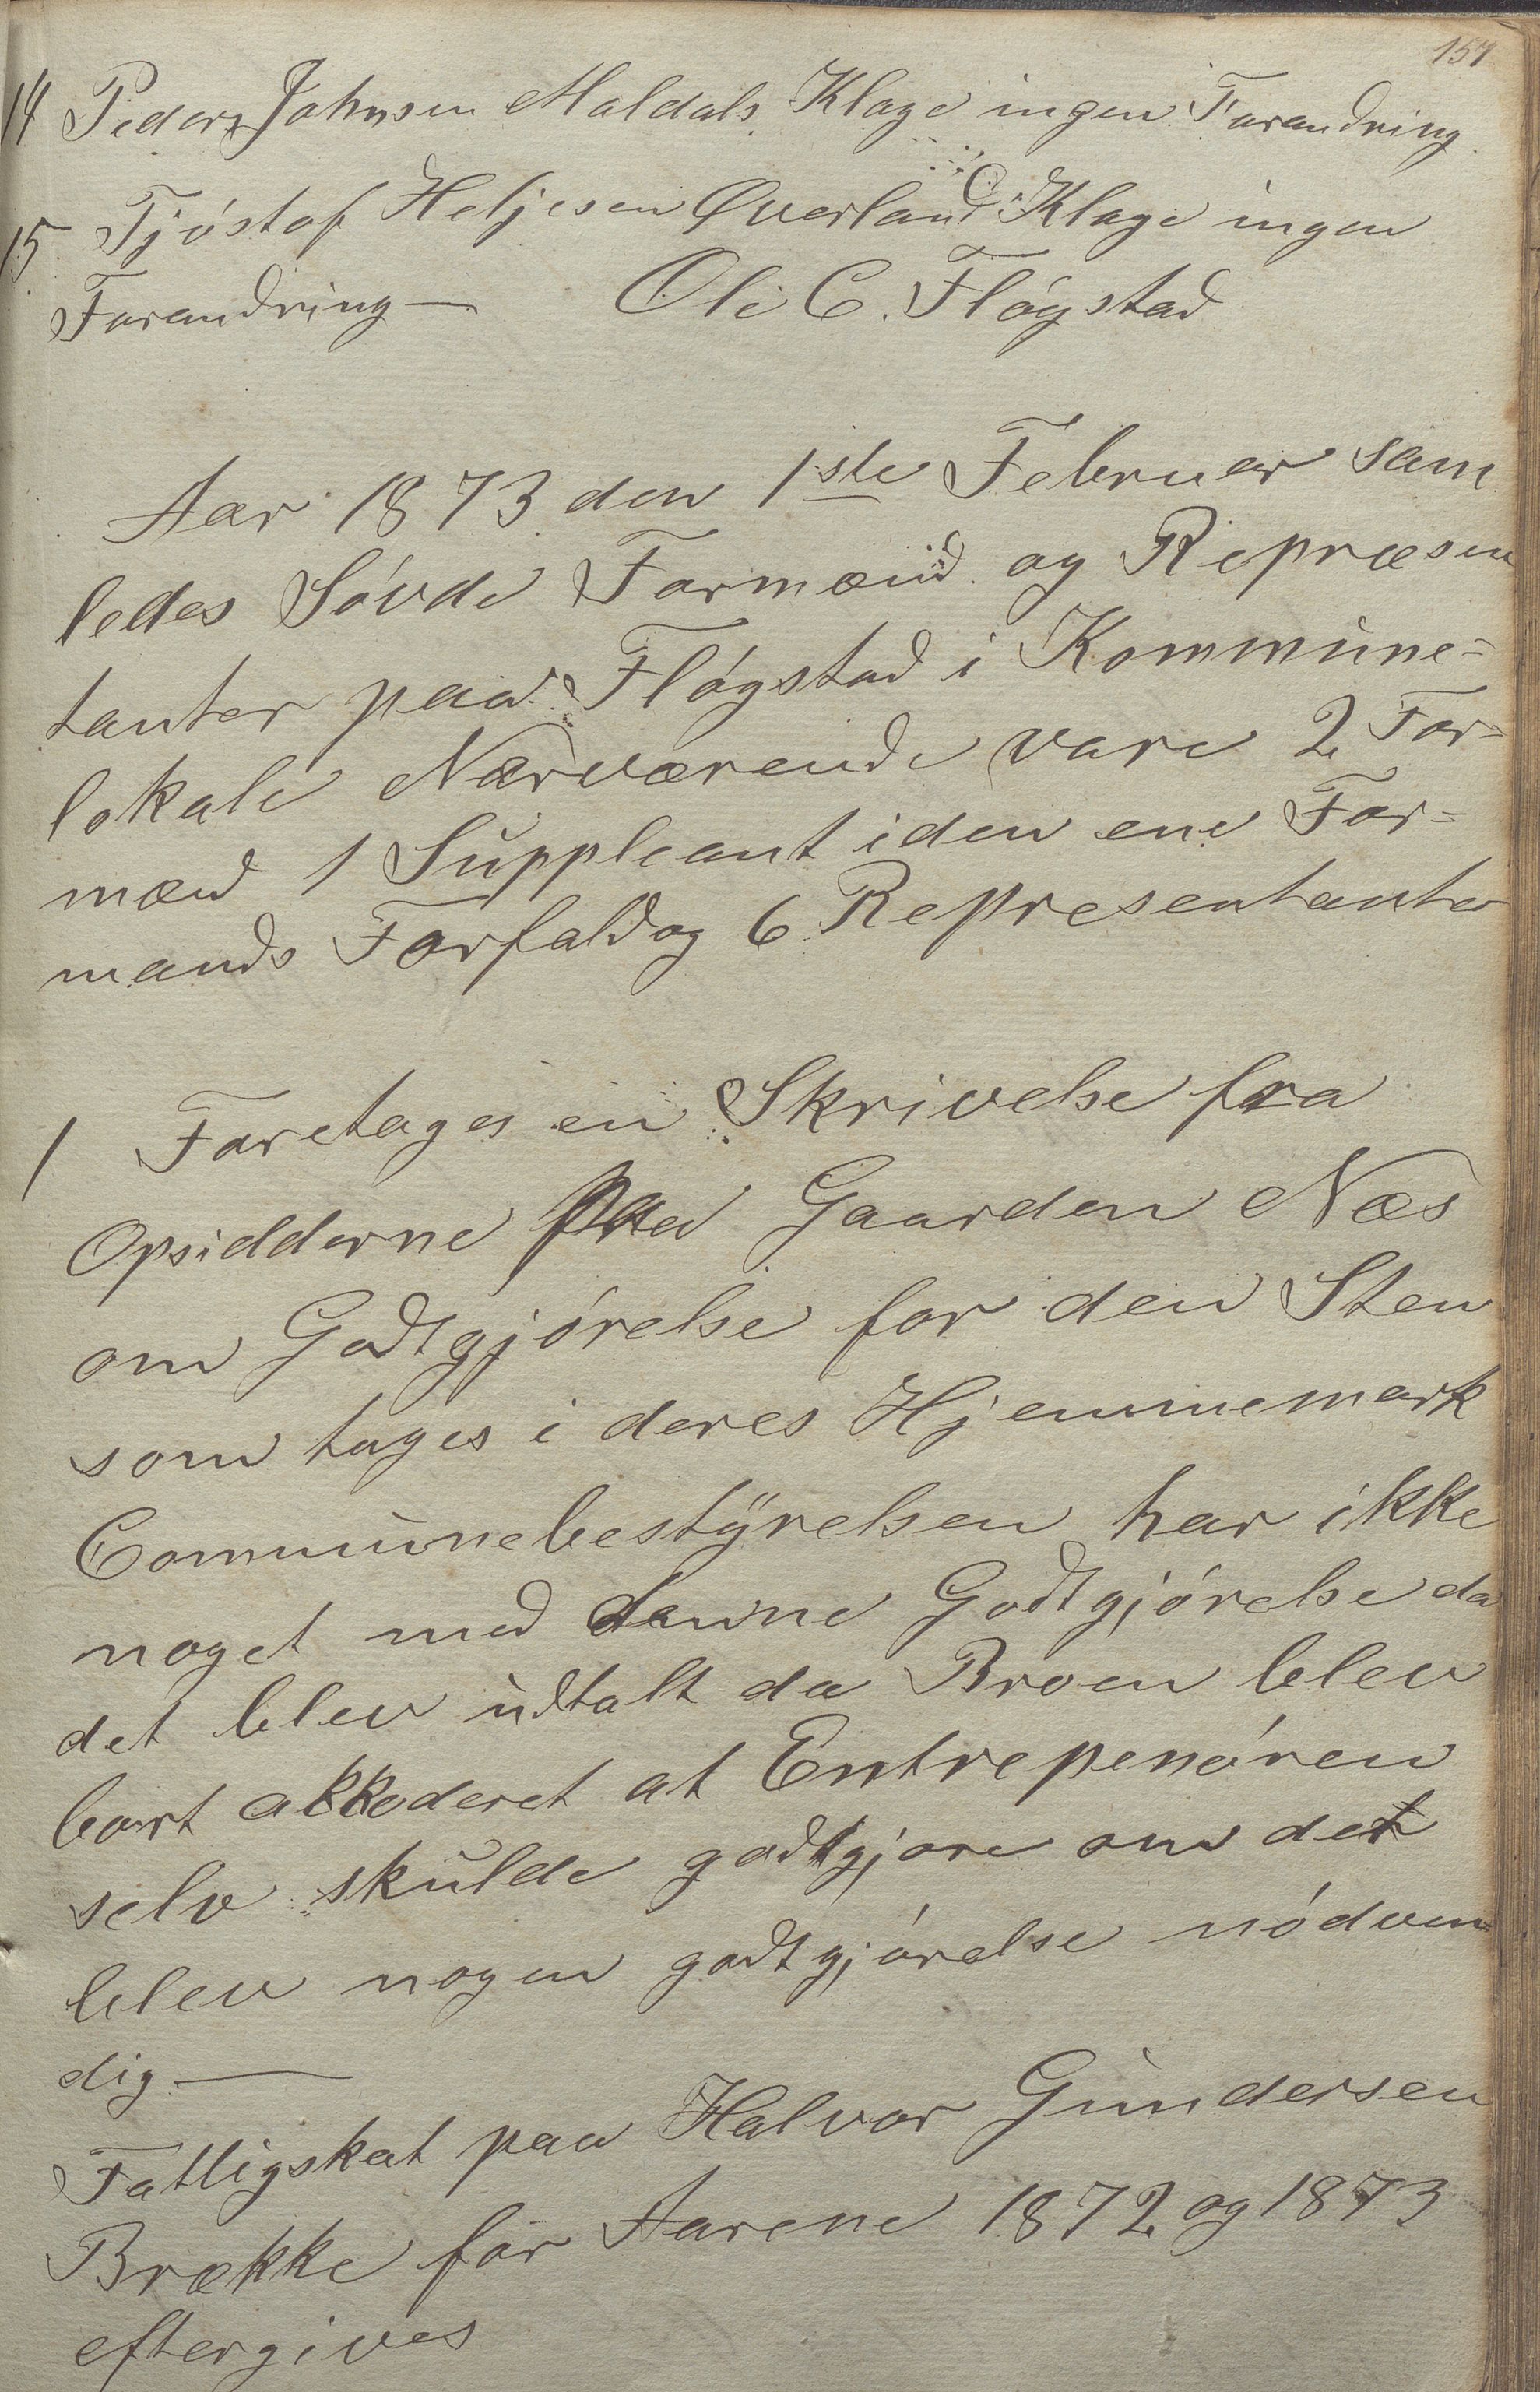 157
14 Peder Johnsen Maldals Klage ingen Forandring
15 Tjóstof Heljesen Øverland Klage ingen
Forandring — Ole C. Flógstad
Aar 1873 den 1ste Februar sam
ledes Sóvde Formænd og Repræsen
tanter paa Flógstad i Kommune=
lokale Nærværende vare 2 For=
mænd 1 Suppleant i den ene For=
mands Forfald og 6 Representanter
1 Foretages en Skrivelse fra
Opsidderne paa Gaarden Næs
om Godtgjórelse for den Sten
som tages i deres Hjemmemark
Communebestÿrelsen har ikke
noget med denne Godtgjórelse da
det blev udtalt da Broen blev
bort akkoderet at Entrepenóren
selv skulde godtgjøre om det
blev nogen godtgjórelse nódven=
dig —
Fattigskat paa Halvor Gundersen
Brække for Aarene 1872 og 1873
eftergives